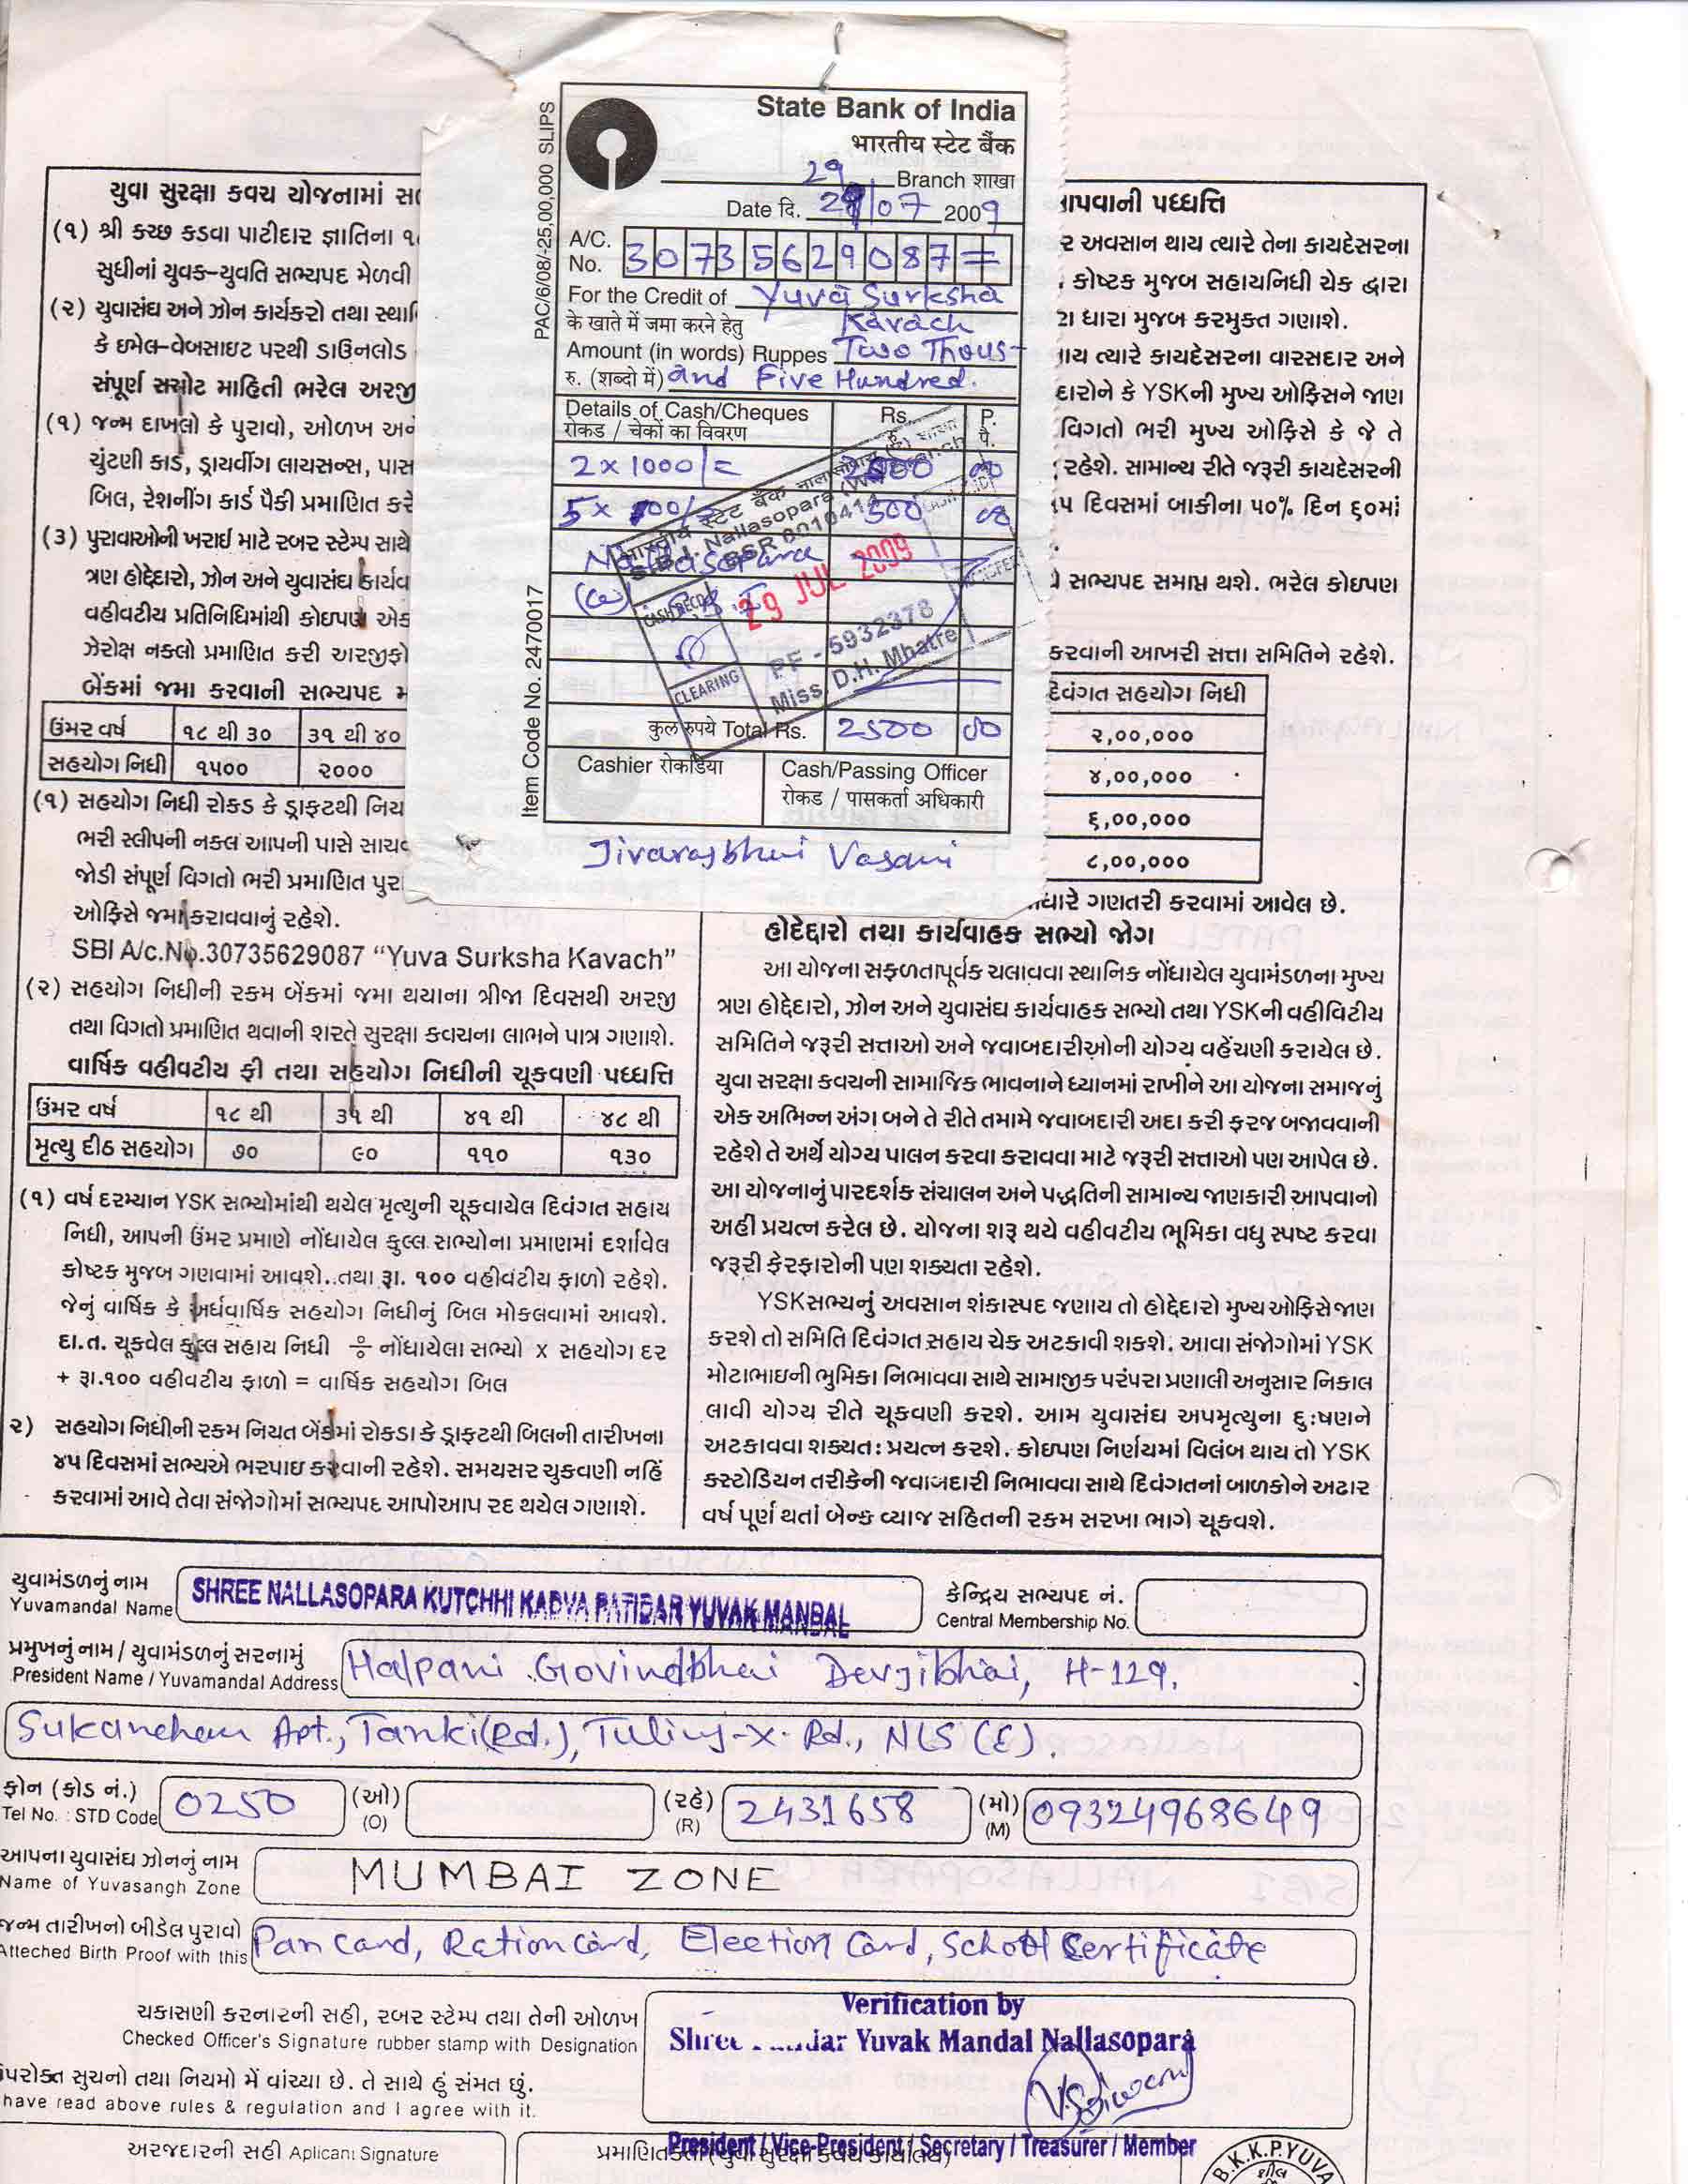 State Bank of India
भारतीय स्टेट बैंक
29 Branch शाखा
Date दि. 29/07 2009
A/C. No. 30735629087=
For the Credit of Yuva Surksha
के खाते में जमा करने हेतु Kavach
Amount (in words) Ruppes Two Thous-
रु. (शब्दो में) and Five Hundred.
Details of Cash/Cheques Rs. P.
रोकड / चेकों का विवरण रु. पै.
2 x 1000/= 2000 00
5 x 100/= 500 00
Nallasopara
29 JUL 2009
CASH RECD
PF - 5932378
Miss. D.H. Mhatre
CLEARING
कुल रुपये Total Rs. 2500 00
Cashier रोकडिया Cash/Passing Officer
रोकड / पासकर्ता अधिकारी
Jivarajbhai Vasani
PAC/6/08/-25,00,000 SLIPS
Item Code No. 2470017
યુવા સુરક્ષા કવચ યોજનામાં
(૧) શ્રી કચ્છ કડવા પાટીદાર જ્ઞાતિના
સુધીનાં યુવક-યુવતિ સભ્યપદ મેળવી
(૨) યુવાસંઘ અને ઝોન કાર્યકરો તથા
કે ઇમેલ-વેબસાઇટ પરથી ડાઉનલોડ
સંપૂર્ણ સચોટ માહિતી ભરેલ અરજી
(૧) જન્મ દાખલો કે પુરાવો, ઓળખ
ચુંટણી કાર્ડ, ડ્રાયવીંગ લાયસન્સ, પાસ
બિલ, રેશનીંગ કાર્ડ પૈકી પ્રમાણિત કરે
(૩) પુરાવાઓની ખરાઇ માટે રબર સ્ટેમ્પ સાથે
ત્રણ હોદ્દેદારો, ઝોન અને યુવાસંઘ કાર્યવ
વહીવટીય પ્રતિનિધિમાંથી કોઇપણ એક
ઝેરોક્ષ નક્લો પ્રમાણિત કરી અરજીફો
બેંકમાં જમા કરવાની સભ્યપદ
ઉંમર વર્ષ ૧૮ થી ૩૦ ૩૧ થી ૪૦
સહયોગ નિધી ૧૫૦૦ ૨૦૦૦
(૧) સહયોગ નિધી રોકડ કે ડ્રાફટથી નિય
ભરી સ્લીપની નકલ આપની પાસે સાચવ
જોડી સંપૂર્ણ વિગતો ભરી પ્રમાણિત પુરા
ઓફિસે જમા કરાવવાનું રહેશે.
SBI A/c.No.30735629087 “Yuva Surksha Kavach”
(૨) સહયોગ નિધીની રકમ બેંકમાં જમા થયાના ત્રીજા દિવસથી અરજી
તથા વિગતો પ્રમાણિત થવાની શરતે સુરક્ષા કવચના લાભને પાત્ર ગણાશે.
વાર્ષિક વહીવટીય ફી તથા સહયોગ નિધીની ચૂકવણી પધ્ધતિ
ઉંમર વર્ષ ૧૮ થી ૩૧ થી ૪૧ થી ૪૮ થી
મૃત્યુ દીઠ સહયોગ ૭૦ ૯૦ ૧૧૦ ૧૩૦
(૧) વર્ષ દરમ્યાન YSK સભ્યોમાંથી થયેલ મૃત્યુની ચૂકવાયેલ દિવંગત સહાય
નિધી, આપની ઉંમર પ્રમાણે નોંધાયેલ કુલ્લ સભ્યોના પ્રમાણમાં દર્શાવેલ
કોષ્ટક મુજબ ગણવામાં આવશે..તથા રૂા. ૧૦૦ વહીવટીય ફાળો રહેશે.
જેનું વાર્ષિક કે અર્ધવાર્ષિક સહયોગ નિધીનું બિલ મોકલવામાં આવશે.
દા.ત. ચૂકવેલ કુલ્લ સહાય નિધી ÷ નોંધાયેલા સભ્યો x સહયોગ દર
+ રૂા.૧૦૦ વહીવટીય ફાળો = વાર્ષિક સહયોગ બિલ
૨) સહયોગ નિધીની રકમ નિયત બેંકમાં રોકડા કે ડ્રાફટથી બિલની તારીખના
૪૫ દિવસમાં સભ્યએ ભરપાઇ કરવાની રહેશે. સમયસર ચુકવણી નહિં
કરવામાં આવે તેવા સંજોગોમાં સભ્યપદ આપોઆપ રદ થયેલ ગણાશે.
આપવાની પધ્ધતિ
ર અવસાન થાય ત્યારે તેના કાયદેસરના
કોષ્ટક મુજબ સહાયનિધી ચેક દ્વારા
ધારા મુજબ કરમુક્ત ગણાશે.
થાય ત્યારે કાયદેસરના વારસદાર અને
દારોને કે YSKની મુખ્ય ઓફિસને જાણ
વિગતો ભરી મુખ્ય ઓફિસે કે જે તે
રહેશે. સામાન્ય રીતે જરૂરી કાયદેસરની
૧૫ દિવસમાં બાકીના ૫૦% દિન ૬૦માં
સભ્યપદ સમાપ્ત થશે. ભરેલ કોઇપણ
કરવાની આખરી સત્તા સમિતિને રહેશે.
દિવંગત સહયોગ નિધી
૨,૦૦,૦૦૦
૪,૦૦,૦૦૦
૬,૦૦,૦૦૦
૮,૦૦,૦૦૦
ધારે ગણતરી કરવામાં આવેલ છે.
હોદેદારો તથા કાર્યવાહક સભ્યો જોગ
આ યોજના સફળતાપૂર્વક ચલાવવા સ્થાનિક નોંધાયેલ યુવામંડળના મુખ્ય
ત્રણ હોદ્દેદારો, ઝોન અને યુવાસંઘ કાર્યવાહક સભ્યો તથા YSKની વહીવિટીય
સમિતિને જરૂરી સત્તાઓ અને જવાબદારીઓની યોગ્ય વહેંચણી કરાયેલ છે.
યુવા સરક્ષા કવચની સામાજિક ભાવનાને ધ્યાનમાં રાખીને આ યોજના સમાજનું
એક અભિન્ન અંગ બને તે રીતે તમામે જવાબદારી અદા કરી ફરજ બજાવવાની
રહેશે તે અર્થે યોગ્ય પાલન કરવા કરાવવા માટે જરૂરી સત્તાઓ પણ આપેલ છે.
આ યોજનાનું પારદર્શક સંચાલન અને પદ્ધતિની સામાન્ય જાણકારી આપવાનો
અહી પ્રયત્ન કરેલ છે. યોજના શરૂ થયે વહીવટીય ભૂમિકા વધુ સ્પષ્ટ કરવા
જરૂરી ફેરફારોની પણ શક્યતા રહેશે.
YSKસભ્યનું અવસાન શંકાસ્પદ જણાય તો હોદ્દેદારો મુખ્ય ઓફિસે જાણ
કરશે તો સમિતિ દિવંગત સહાય ચેક અટકાવી શકશે. આવા સંજોગોમાં YSK
મોટાભાઇની ભુમિકા નિભાવવા સાથે સામાજીક પરંપરા પ્રણાલી અનુસાર નિકાલ
લાવી યોગ્ય રીતે ચૂકવણી કરશે. આમ યુવાસંઘ અપમૃત્યુના દુઃષણને
અટકાવવા શક્યતઃ પ્રયત્ન કરશે. કોઇપણ નિર્ણયમાં વિલંબ થાય તો YSK
કસ્ટોડિયન તરીકેની જવાબદારી નિભાવવા સાથે દિવંગતનાં બાળકોને અઢાર
વર્ષ પૂર્ણ થતાં બેન્ક વ્યાજ સહિતની રકમ સરખા ભાગે ચૂકવશે.
યુવામંડળનું નામ કેન્દ્રિય સભ્યપદ નં.
Yuvamandal Name SHREE NALLASOPARA KUTCHHI KADVA PATIDAR YUVAK MANDAL Central Membership No.
પ્રમુખનું નામ / યુવામંડળનું સરનામું
President Name / Yuvamandal Address Halpani Govindbhai Devjibhai, H-129,
Sukancham Apt., Tanki(Rd.), Tulinj-X-Rd., NLS (E).
ફોન (કોડ નં.) (ઓ) (રહે) (મો)
Tel No. : STD Code 0250 (O) (R) 2431658 (M) 09324968649
આપના યુવાસંઘ ઝોનનું નામ
Name of Yuvasangh Zone MUMBAI ZONE
જન્મ તારીખનો બીડેલ પુરાવો
Atteched Birth Proof with this Pan Card, Ration Card, Election Card, School Certificate
ચકાસણી કરનારની સહી, રબર સ્ટેમ્પ તથા તેની ઓળખ
Checked Officer's Signature rubber stamp with Designation
Verification by
Yuvak Mandal Nallasopara
ઉપરોક્ત સુચનો તથા નિયમો મેં વાંચ્યા છે. તે સાથે હું સંમત છું.
have read above rules & regulation and I agree with it.
President / Vice-President / Secretary / Treasurer / Member
અરજદારની સહી Aplicant Signature
B.K.K.P.YUVA